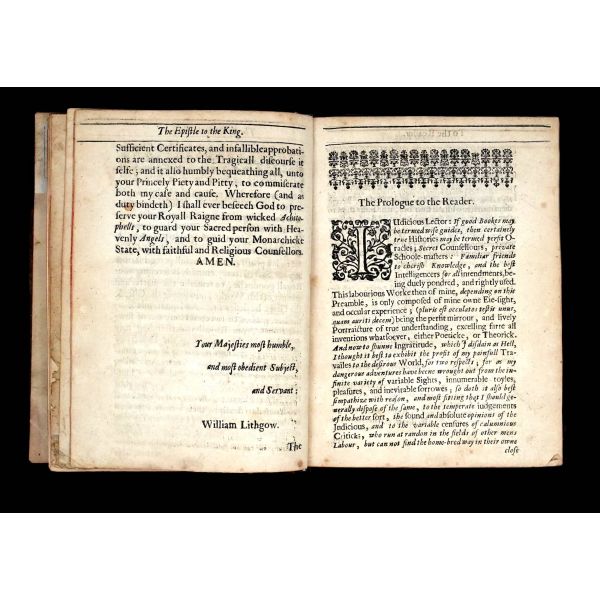 The Epistle to the King.
Sufficient Certificates, and infallible approbati-
ons are annexed to the Tragicall discourse it
selfe; and it also humbly bequeathing all, unto
your Princely Piety and Pitty, to commiserate
both my case and cause. Wherefore (and as
duty bindeth) I shall ever beseech God to pre-
serve your Royall Raigne from wicked Achito-
phells, to guard your Sacred person with Hea-
venly Angels, and to guid your Monarchicke
State, with faithful and Religious Counsellors.
AMEN.
Your Majesties most humble,
and most obedient Subject,
and Servant;
William Lithgow.
The
The Prologue to the Reader.
IUdicious Lector: If good Bookes may
be termed wise guides, then certainely
true Histories may be termed presse O-
racles; Secret Counsellours, private
Schoole-masters: Familiar friends
to cherish Knowledge, and the best
Intelligencers for all intendments, be-
ing duely pondred, and rightly used.
This labourious Worke then of mine, depending on this
Preamble, is only composed of mine owne Eie-sight,
and occular experience; (pluris est occulatus testis unus,
quam auriti decem) being the perfit mirrour, and lively
Portraicture of true understanding, excelling farre all
inventions whatsoever, either Poeticke, or Theorick.
And now to shunne Ingratitude, which I disdain as Hell,
I thought it best to exhibit the profit of my painfull Tra-
vailes to the desirous World, for two respects; for as my
dangerous adventures have beene wrought out from the in-
finite variety of variable Sights, innumerable toyles,
pleasures, and inevitable sorrowes; so doth it also best
simpathize with reason, and most fitting that I should ge-
nerally dispose of the same, to the temperate judgements
of the better sort, the sound and absolute opinions of the
Judicious, and to the variable censures of calumnious
Criticks, who run at randon in the fields of other mens
Labour, but can not find the home-bred way in their owne
close